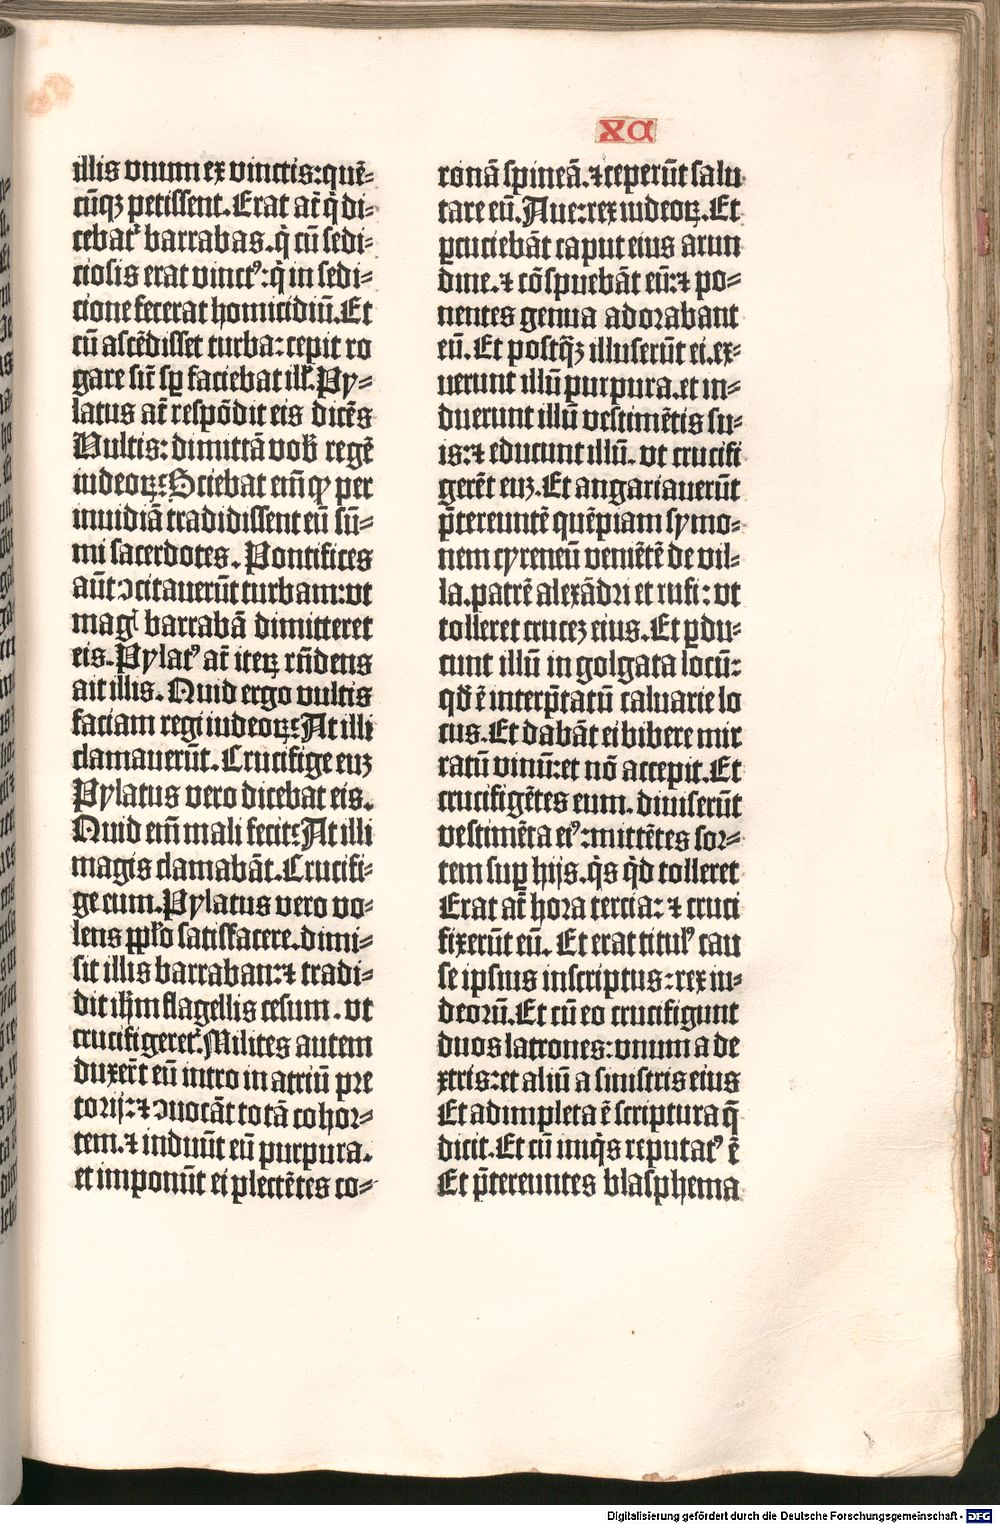 XC
illis vnum ex vinctis:quē⸗
cūqꝫ petissent. Erat aūt q̇ di⸗
cebať barrabas.q̇ cū sedi⸗
ciosis erat vinctꝰ:q̇ in sedi⸗
cione fecerat homicidiū. Et
cū ascēdisset turba:cepit ro
gare sic̄ sꝑ faciebat ill'. Py⸗
latus at̄ respōdit eis dicēs
Vultis:dimittā vob' regē
iudeoꝝ? Sciebat em̄ ꝙ per
inuidiā tradidissent eū sū⸗
mi sacerdotes. Pontifices
aūt ↄcitauerūt turbam:vt
mag̍ barrabā dimitteret
eis. Pylatꝰ at̄ iteꝝ rn̄dens
ait illis. Quid ergo vultis
faciam regi iudeoꝝ? At illi
clamauerūt. Crucifige euꝫ
Pylatus vero dicebat eis.
Quid em̄ mali fecit? At illi
magis clamabāt. Crucifi⸗
ge eum. Pylatus vero vo⸗
lens pp̄lo satisfacere.dimi⸗
sit illis barraban:⁊ tradi⸗
dit ih̄m flagellis cesum. vt
crucifigereť. Milites autem
duxer̄t eū intro in atriū pre
torij:⁊ ↄuocāt totā cohor⸗
tem.⁊ induūt eū purpura.
et imponūt ei plectētes co⸗
ronā spineā.⁊ ceperūt salu
tare eū. Aue:rex iudeoꝝ. Et
ꝑcuciebāt caput eius arun
dine.⁊ cōspuebāt eū:⁊ po⸗
nentes genua adorabant
eū. Et postq̄ꝫ illuserūt ei.ex⸗
uerunt illū purpura.et in⸗
duerunt illū vestimētis su⸗
is:⁊ educunt illū. vt crucifi
gerēt euꝫ. Et angariauerūt
p̄tereuntē quēpiam symo⸗
nem cyreneū veniētē de vil⸗
la.patrē alexādri et rufi: vt
tolleret cruceꝫ eius. Et ꝑdu⸗
cunt illū in golgata locū:
qd̄ ē interp̄tatū caluarie lo
cus. Et dabāt ei bibere mir
ratū vinū:et nō accepit. Et
crucifigētes eum. diuiserūt
vestimēta eiꝰ:mittētes sor⸗
tem suꝑ hijs.q̇s q̇d tolleret
Erat at̄ hora tercia: ⁊ cruci
fixerūt eū. Et erat titulꝰ cau
se ipsius inscriptus:rex iu⸗
deorū. Et cū eo crucifigunt
duos latrones:vnum a de
xtris:et aliū a sinistris eius
Et adimpleta ē scriptura q̄
dicit. Et cū iniq̇s reputatꝰ ē
Et p̄tereuntes blasphema
Digitalisierung gefördert durch die Deutsche Forschungsgemeinschaft - DFG